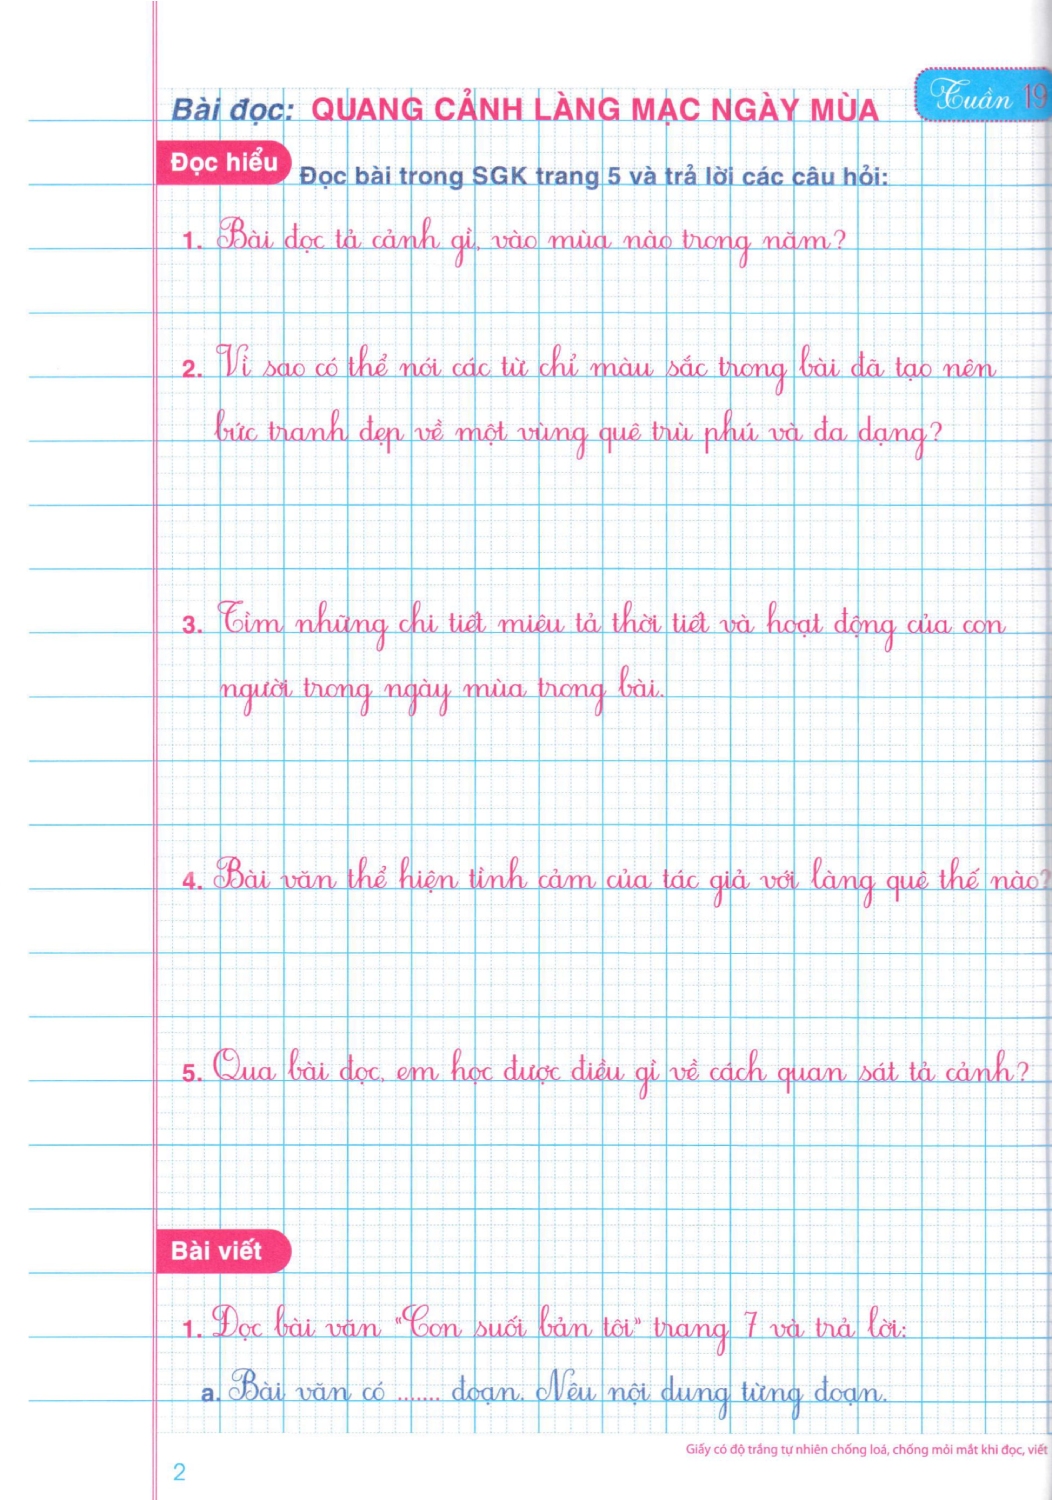 Tuần 19
Bài đọc: QUANG CẢNH LÀNG MẠC NGÀY MÙA
Đọc hiểu
Đọc bài trong SGK trang 5 và trả lời các câu hỏi:
1. Bài đọc tả cảnh gì, vào mùa nào trong năm?
2. Vì sao có thể nói các từ chỉ màu sắc trong bài đã tạo nên
bức tranh đẹp về một vùng quê trù phú và đa dạng?
3. Tìm những chi tiết miêu tả thời tiết và hoạt động của con
người trong ngày mùa trong bài.
4. Bài văn thể hiện tình cảm của tác giả với làng quê thế nào?
5. Qua bài đọc, em học được điều gì về cách quan sát tả cảnh?
Bài viết
1. Đọc bài văn "Con suối bản tôi" trang 7 và trả lời:
a. Bài văn có ....... đoạn. Nêu nội dung từng đoạn.
Giấy có độ trắng tự nhiên chống loá, chống mỏi mắt khi đọc, viết
2